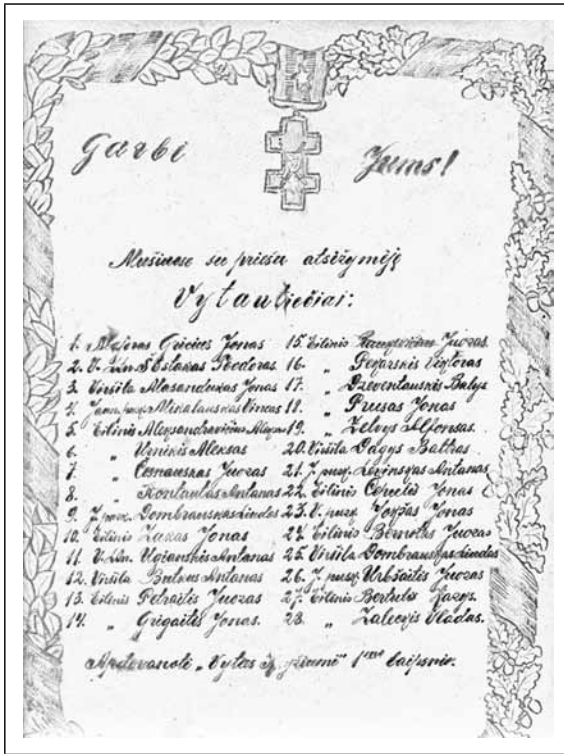 Garbė Jums!
Mūšiuose su priešu atsižymėję
Vytautiečiai:
1. Majoras Gricius Jonas
2. V. Ltn. Šestakas Teodoras
3. Viršila Jonas
4. Jaun. pusk. Mikalauskas Vincas
5. Eilinis Aleksandravičius
6. „ Urnikis Aleksas
7. „ Česnauskas Juozas
8. „ Kontautas Antanas
9. J. pusk. Dombrauskas Liudas
10. Eilinis Zakas Jonas
11. V. Ltn. Ugianskis Antanas
12. Viršila Butkus Antanas
13. Eilinis Petraitis Juozas
14. „ Grigaitis Jonas.
15. Eilinis Juozas
16. „ Viktoras
17. „ Dzeventauskis Balys
18. „ Prusas Jonas
19. „ Zelvys Alfonsas.
20. Viršila Dagys Baltras
21. J. pusk. Levinskas Antanas
22. Eilinis Jonas
23. V. pusk. Jonas
24. Eilinis Bernotas Juozas
25. Viršila Dombrauskas Liudas
26. J. pusk. Urbšaitis Juozas
27. Eilinis Bertulis Kazys.
28. „ Vladas.
Apdovanoti „Vyties kryžiumi" laipsnio.